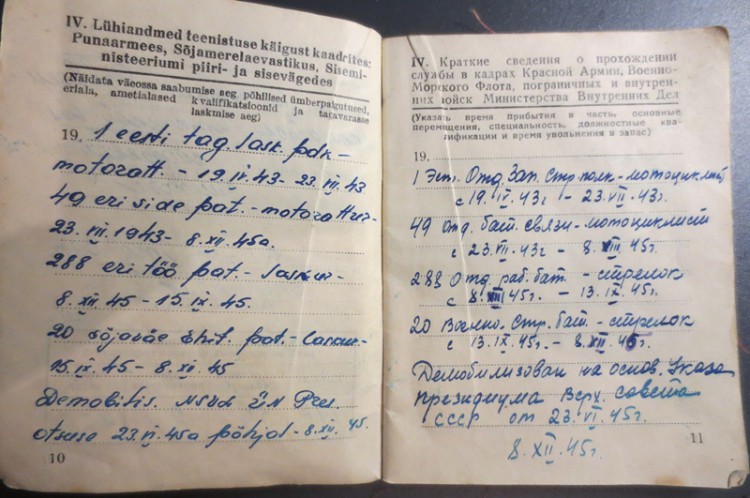 IV. Lühiandmed teenistuse käigust kaadrites:
Punaarmees, Sõjamerelaevastikus, Sisemi-
nisteeriumi piiri- ja sisevägedes
(Näidata väeossa saabumise aeg, põhilised ümberpaigutused,
eriala, ametialased kvalifikatsioonid ja tagavarasse
laskmise aeg)
19. 1 eesti tag. lask. polk-
motoratt. - 19. IV. 43 - 23. VII. 43
49 eri side pat. - motorattur-
23. VII. 1943 - 8. XII. 45a.
288 eri töö pat. - laskur-
8. XII 45 - 15. IX. 45.
20 sõjaväe ehit. pat. - laskur-
15. IX. 45 - 8. XII. 45
Demobilis. NSVL ÜN Pres.
otsuse 23. VI. 45a põhjal - 8. XII. 45.
10
IV. Краткие сведения о прохождении
службы в кадрах Красной Армии, Военно-
Морского Флота, пограничных и внутрен-
них войск Министерства Внутренних Дел
(Указать время прибытия в часть, основные
перемещения, специальность, должностные ква-
лификации и время увольнения в запас)
19.
1 Эст. Отд. Зап. Стр. полк - мотоциклист
с 19. IV. 43г - 23. VII. 43г.
49 Отд. бат. связи - мотоциклист
с 23. VII. 43г - 8. XII. 45г.
288 Отд. раб. бат. - стрелок
с 8. XII. 45г. - 13. IX. 45г.
20 Военно. Стр. бат. - стрелок
с 13. IX. 45г. - 8. XII. 45г.
Демобилизован на основ. Указа
Президиума Верх. Совета
СССР от 23. VI. 45г.
8. XII. 45г.
11